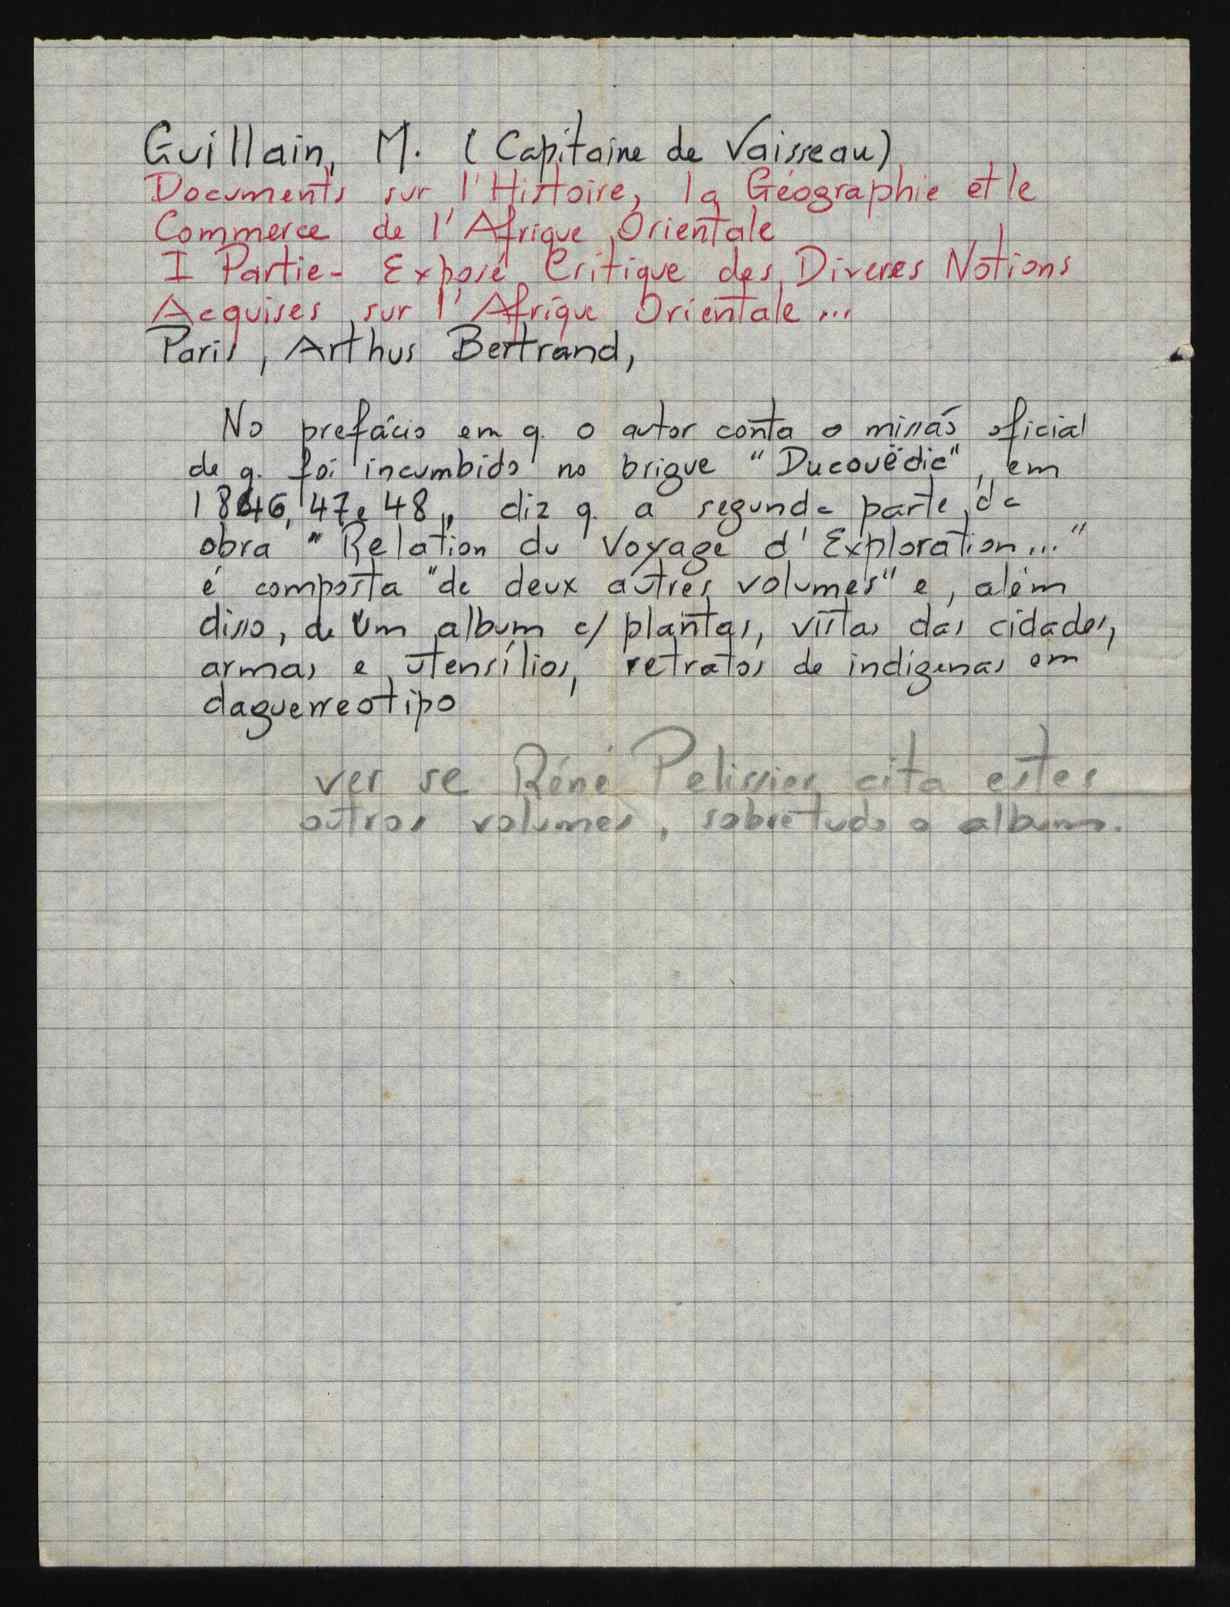 Guillain, M. (Capitaine de Vaisseau)
Documents sur l'Histoire, la Géographie et le
Commerce de l'Afrique Orientale
I Partie - Exposé Critique des Diveres Notions
Acquises sur l'Afrique Orientale...
Paris, Arthus Bertrand,
No prefácio em q. o autor conta a missão oficial
de q. foi incumbido no brigue "Ducouëdic", em
1846, 47 e 48, diz q. a segunda parte da
obra "Relation du Voyage d'Exploration..."
é composta "de deux autres volumes" e, além
disso, de um album c/ plantas, vistas das cidades,
armas e utensílios, retratos de indígenas em
daguerreotipo
ver se Réné Pelissier cita estes
outros volumes, sobretudo o album.